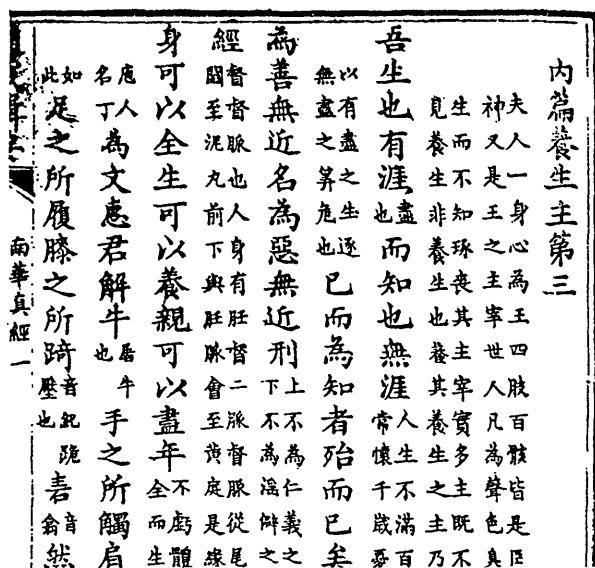 内篇養生主第三
夫人一身心為王四肢百骸皆是臣
神又是王之主宰世人凡為聲色臭
生而不知琢喪其主宰實多主既不
覓養生非養生也養其養生之主乃
吾生也有涯盡也而知也無涯人生不滿百常懷千歲憂
以有盡之生逐無盡之筭危也已而為知者殆而已矣
為善無近名為惡無近刑上不為仁義之下不為淫僻之
經督督脈也人身有任督二脈督脈從尾閭至泥丸前下與任脈會至黄庭是緣
身可以全生可以養親可以盡年不虧體全而生
庖人名丁為文惠君解牛屠牛也手之所觸肩
如此足之所履膝之所踦音紀跪壓也砉音翕然
南華真經一